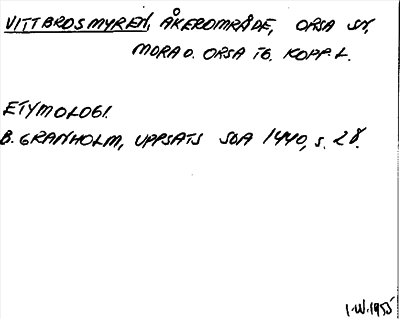 VITTBROSMYREN, ÅKEROMRÅDE, ORSA SN,
MORA O. ORSA TG. KOPP. L.
ETYMOLOGI.
B. GRANHOLM, UPPSATS SOA 1440, s. 28.
I-W. 1955